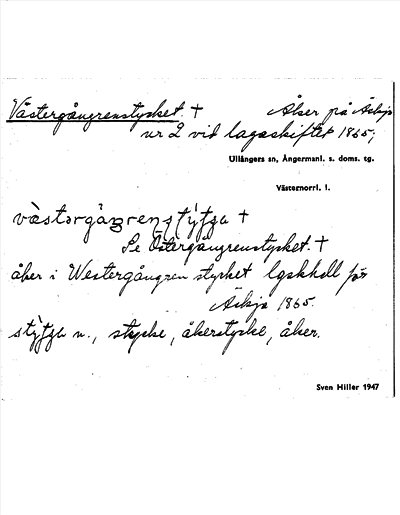 Västergångrenstycket. + Åker på Äskja
nr 2 vid lagaskiftet 1865;
Ullångers sn, Ångermanl. s. doms. tg.
Västernorrl. l.
Se Östergångrenstycket. +
åker i Westergångren stycket lgskhdl för
Äskja 1865.
n., stycke, åkerstycke, åker.
Sven Hiller 1947